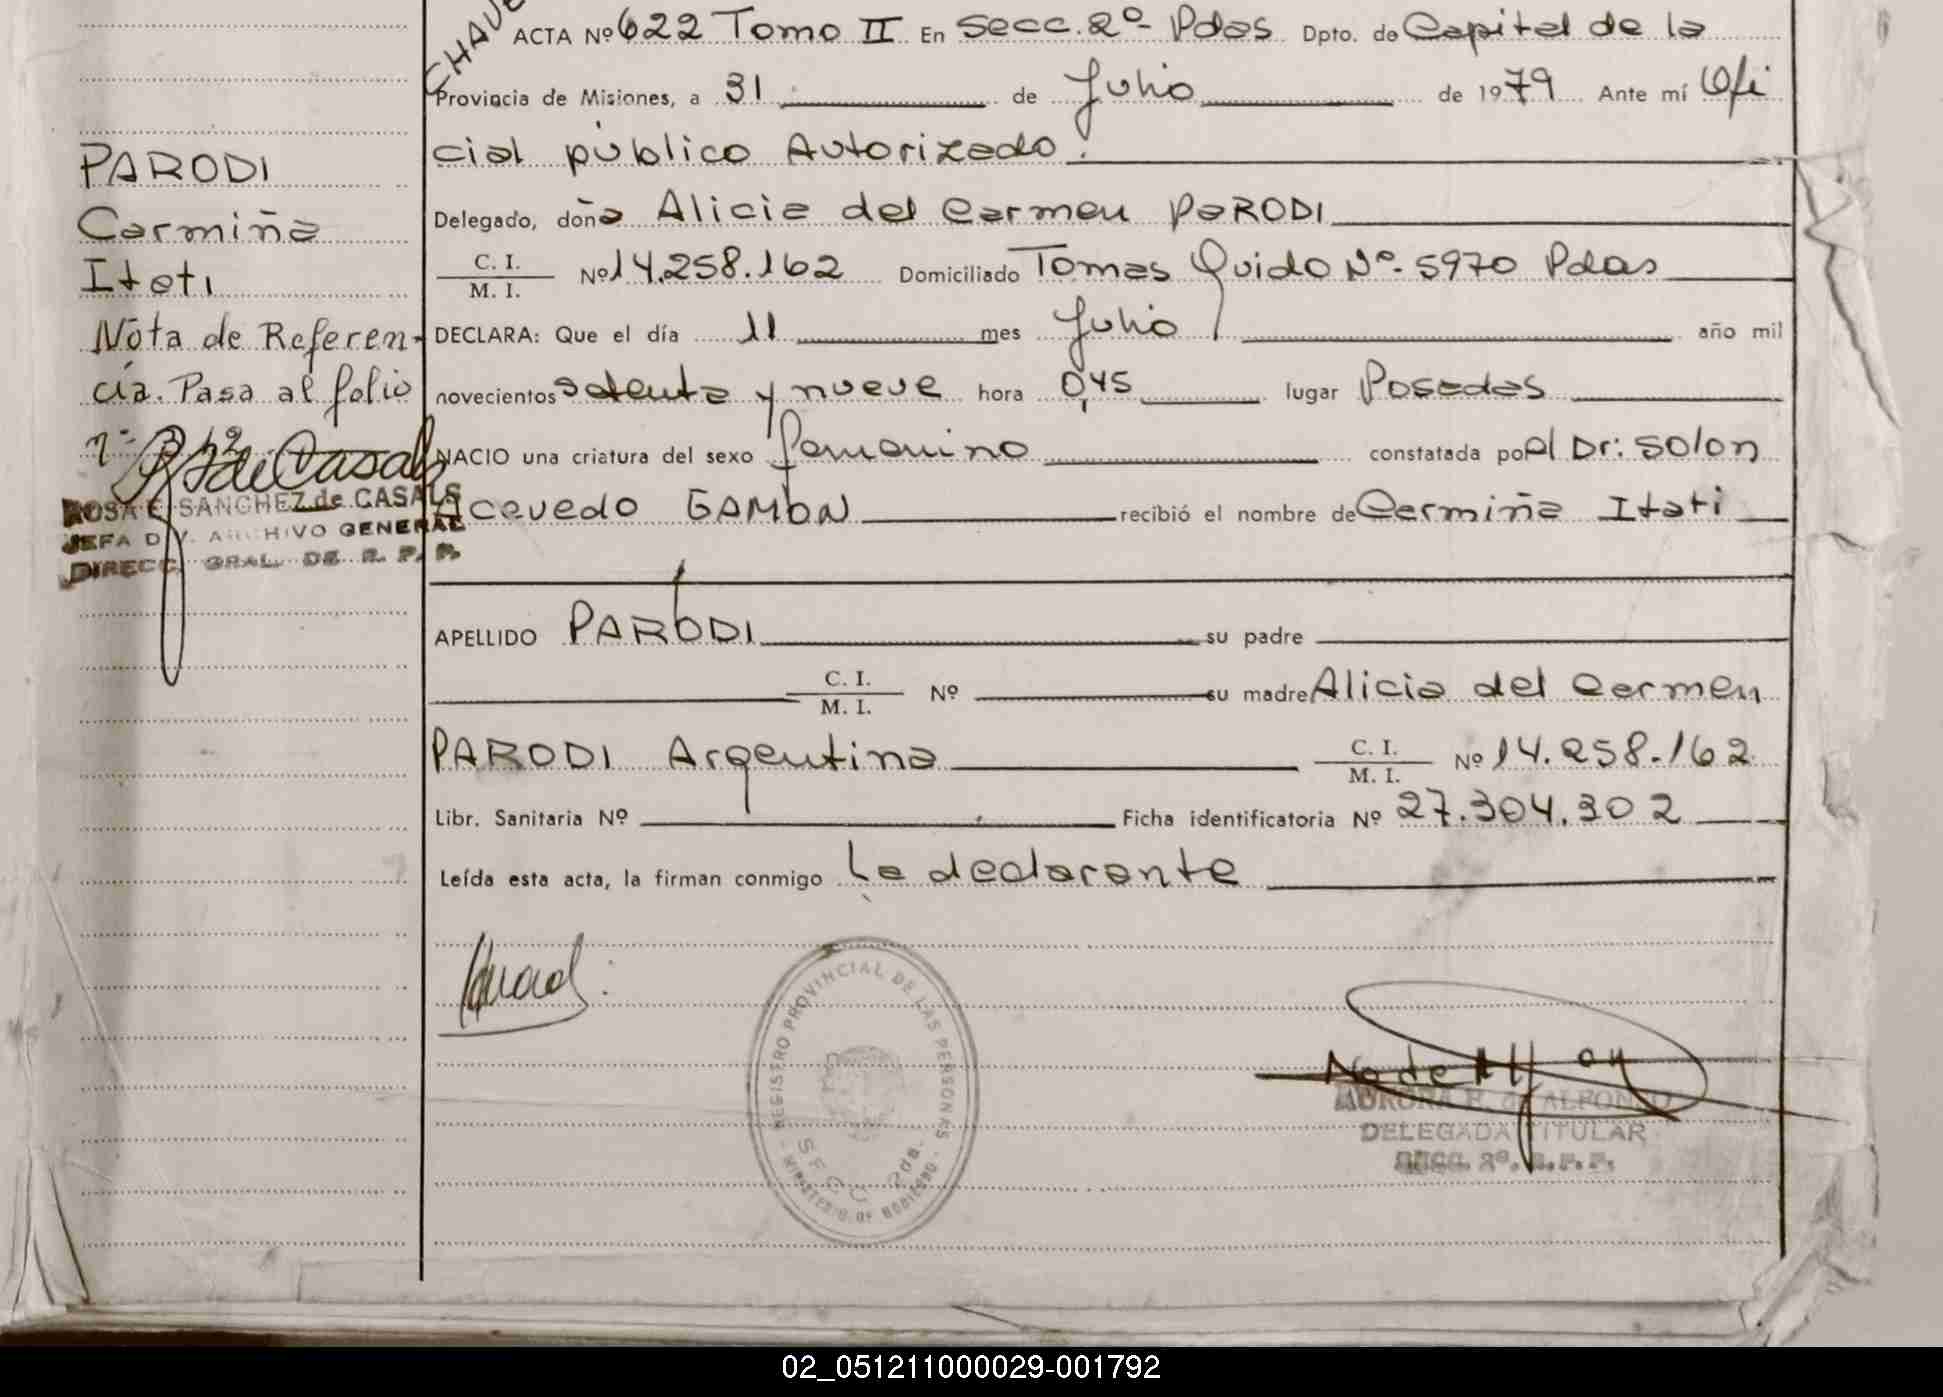 CHAVE
ACTA Nº 622 Tomo II En Secc. 2º- Pdas Dpto. de Capital de la
Provincia de Misiones, a 31 de Julio de 1979 Ante mí Ofi
cial público Autorizado.
Delegado, doña Alicia del Carmen PARODI
C. I.
M. I.
Nº 14.258.162 Domiciliado Tomas Guido Nº- 5970 Pdas
DECLARA: Que el día 11 mes Julio año mil
novecientos setenta y nueve hora 0,45 lugar Posadas
NACIO una criatura del sexo femenino constatada por el Dr: Solon
Acevedo GAMON recibió el nombre de Carmiña Itati
APELLIDO PARODI su padre
C. I.
M. I.
Nº su madre Alicia del Carmen
PARODI Argentina
C. I.
M. I.
Nº 14.258.162
Libr. Sanitaria Nº Ficha identificatoria Nº 27.304.302
Leída esta acta, la firman conmigo La declarante
PARODI
Carmiña
Itati
Nota de Referen-
cia. Pasa al folio
ROSA E. SANCHEZ de CASALS
JEFA DIV. ARCHIVO GENERAL
DIRECC. GRAL. DE R. P. P.
REGISTRO PROVINCIAL DE LAS PERSONAS
SECC. 2da.
MINISTERIO DE GOBIERNO
AURORA H. de ALFONSO
DELEGADA TITULAR
SECC. 2º. R.P.P.
02_051211000029-001792